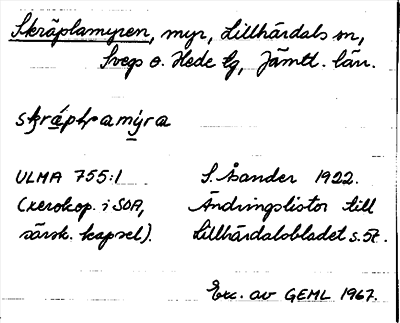 Skräplamyren, myr, Lillhärdals sn,
Svegs o. Hede tg, Jämtl. län.
skráplramýra
ULMA 755:1
(xerokop. i SOA,
särsk. kapsel).
S. Zander 1922.
Ändringslistor till
Lillhärdalsbladet s. 52.
Exc. av GEML 1967.